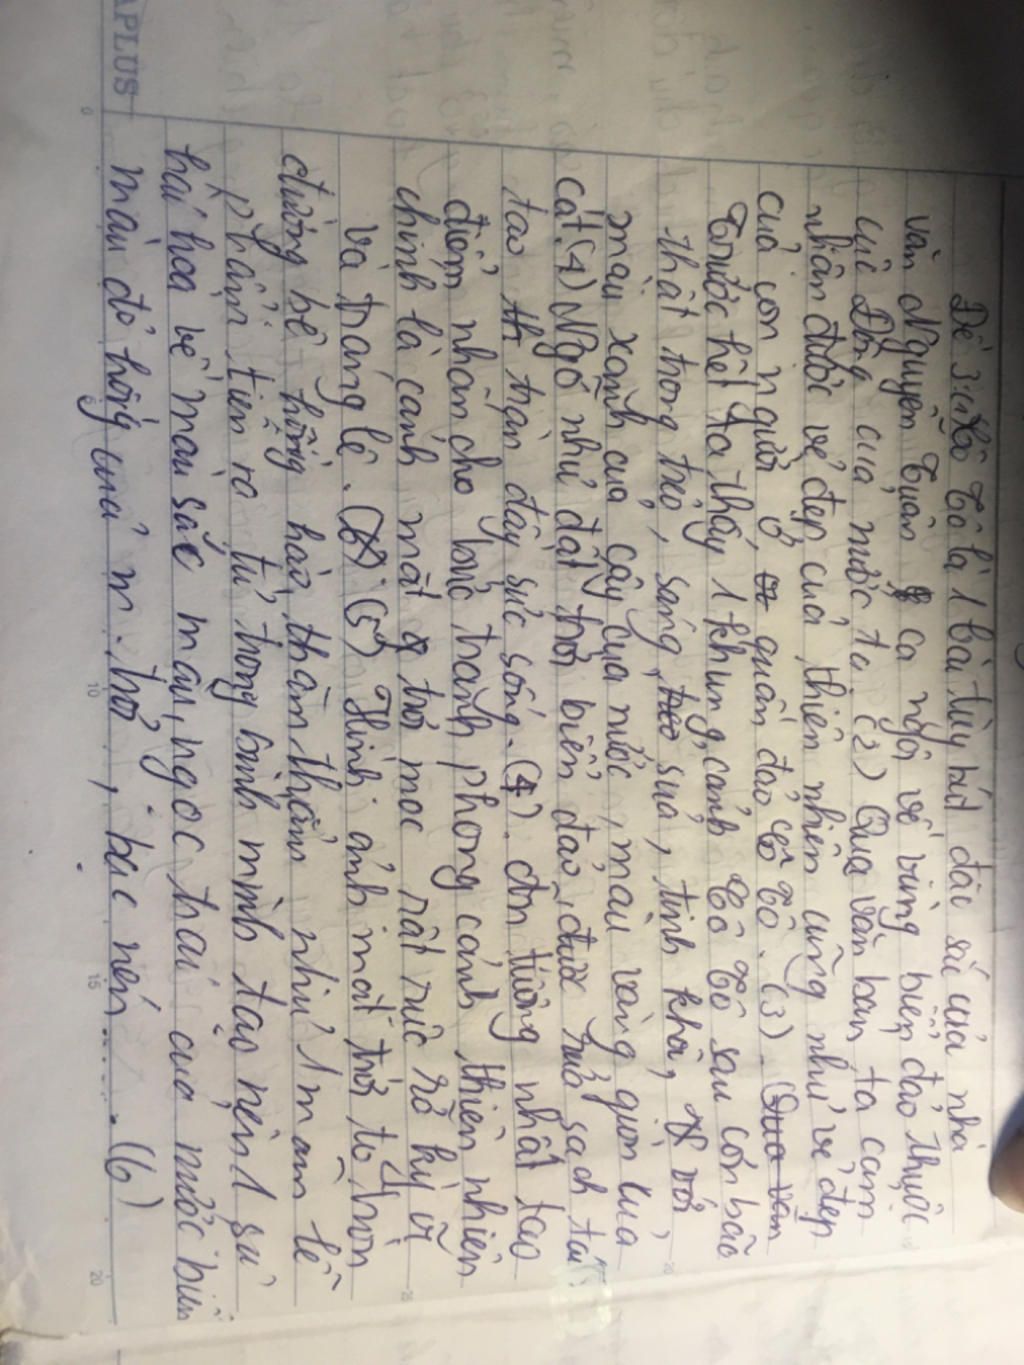 APLUS
Đề 3: (1) Cô Tô là 1 bài tùy bút đặc sắc của nhà
văn Nguyễn Tuân ca ngợi về vùng biển đảo thuộc
cực Đông của nước ta. (2) Qua văn bản ta cảm
nhận được vẻ đẹp của thiên nhiên cũng như vẻ đẹp
của con người ở quần đảo Cô Tô. (3). (Qua văn
Trước hết ta thấy 1 khung cảnh Cô Tô sau cơn bão
thật trong trẻo, sáng sủa, tinh khôi, với
màu xanh của cây của nước, màu vàng giòn của
cát. (4) Ngỡ như đất trời biển đảo được rửa sạch
tạo thần đầy sức sống. (4). ấn tượng nhất tạo
điểm nhấn cho bức tranh phong cảnh thiên nhiên
chính là cảnh mặt trời mọc rất rực rỡ kỳ vĩ
và tráng lệ. (5) Hình ảnh mặt trời to tròn
đường bệ hồng hào, thăm thẳm như 1 mâm lễ
phẩm tiến ra từ trong bình minh tạo nên 1 sự
hài hòa về màu sắc màu ngọc trai của nước biển
màu đỏ hồng của m. trời, bạc nén ..... (6)
0 5 10 15 20